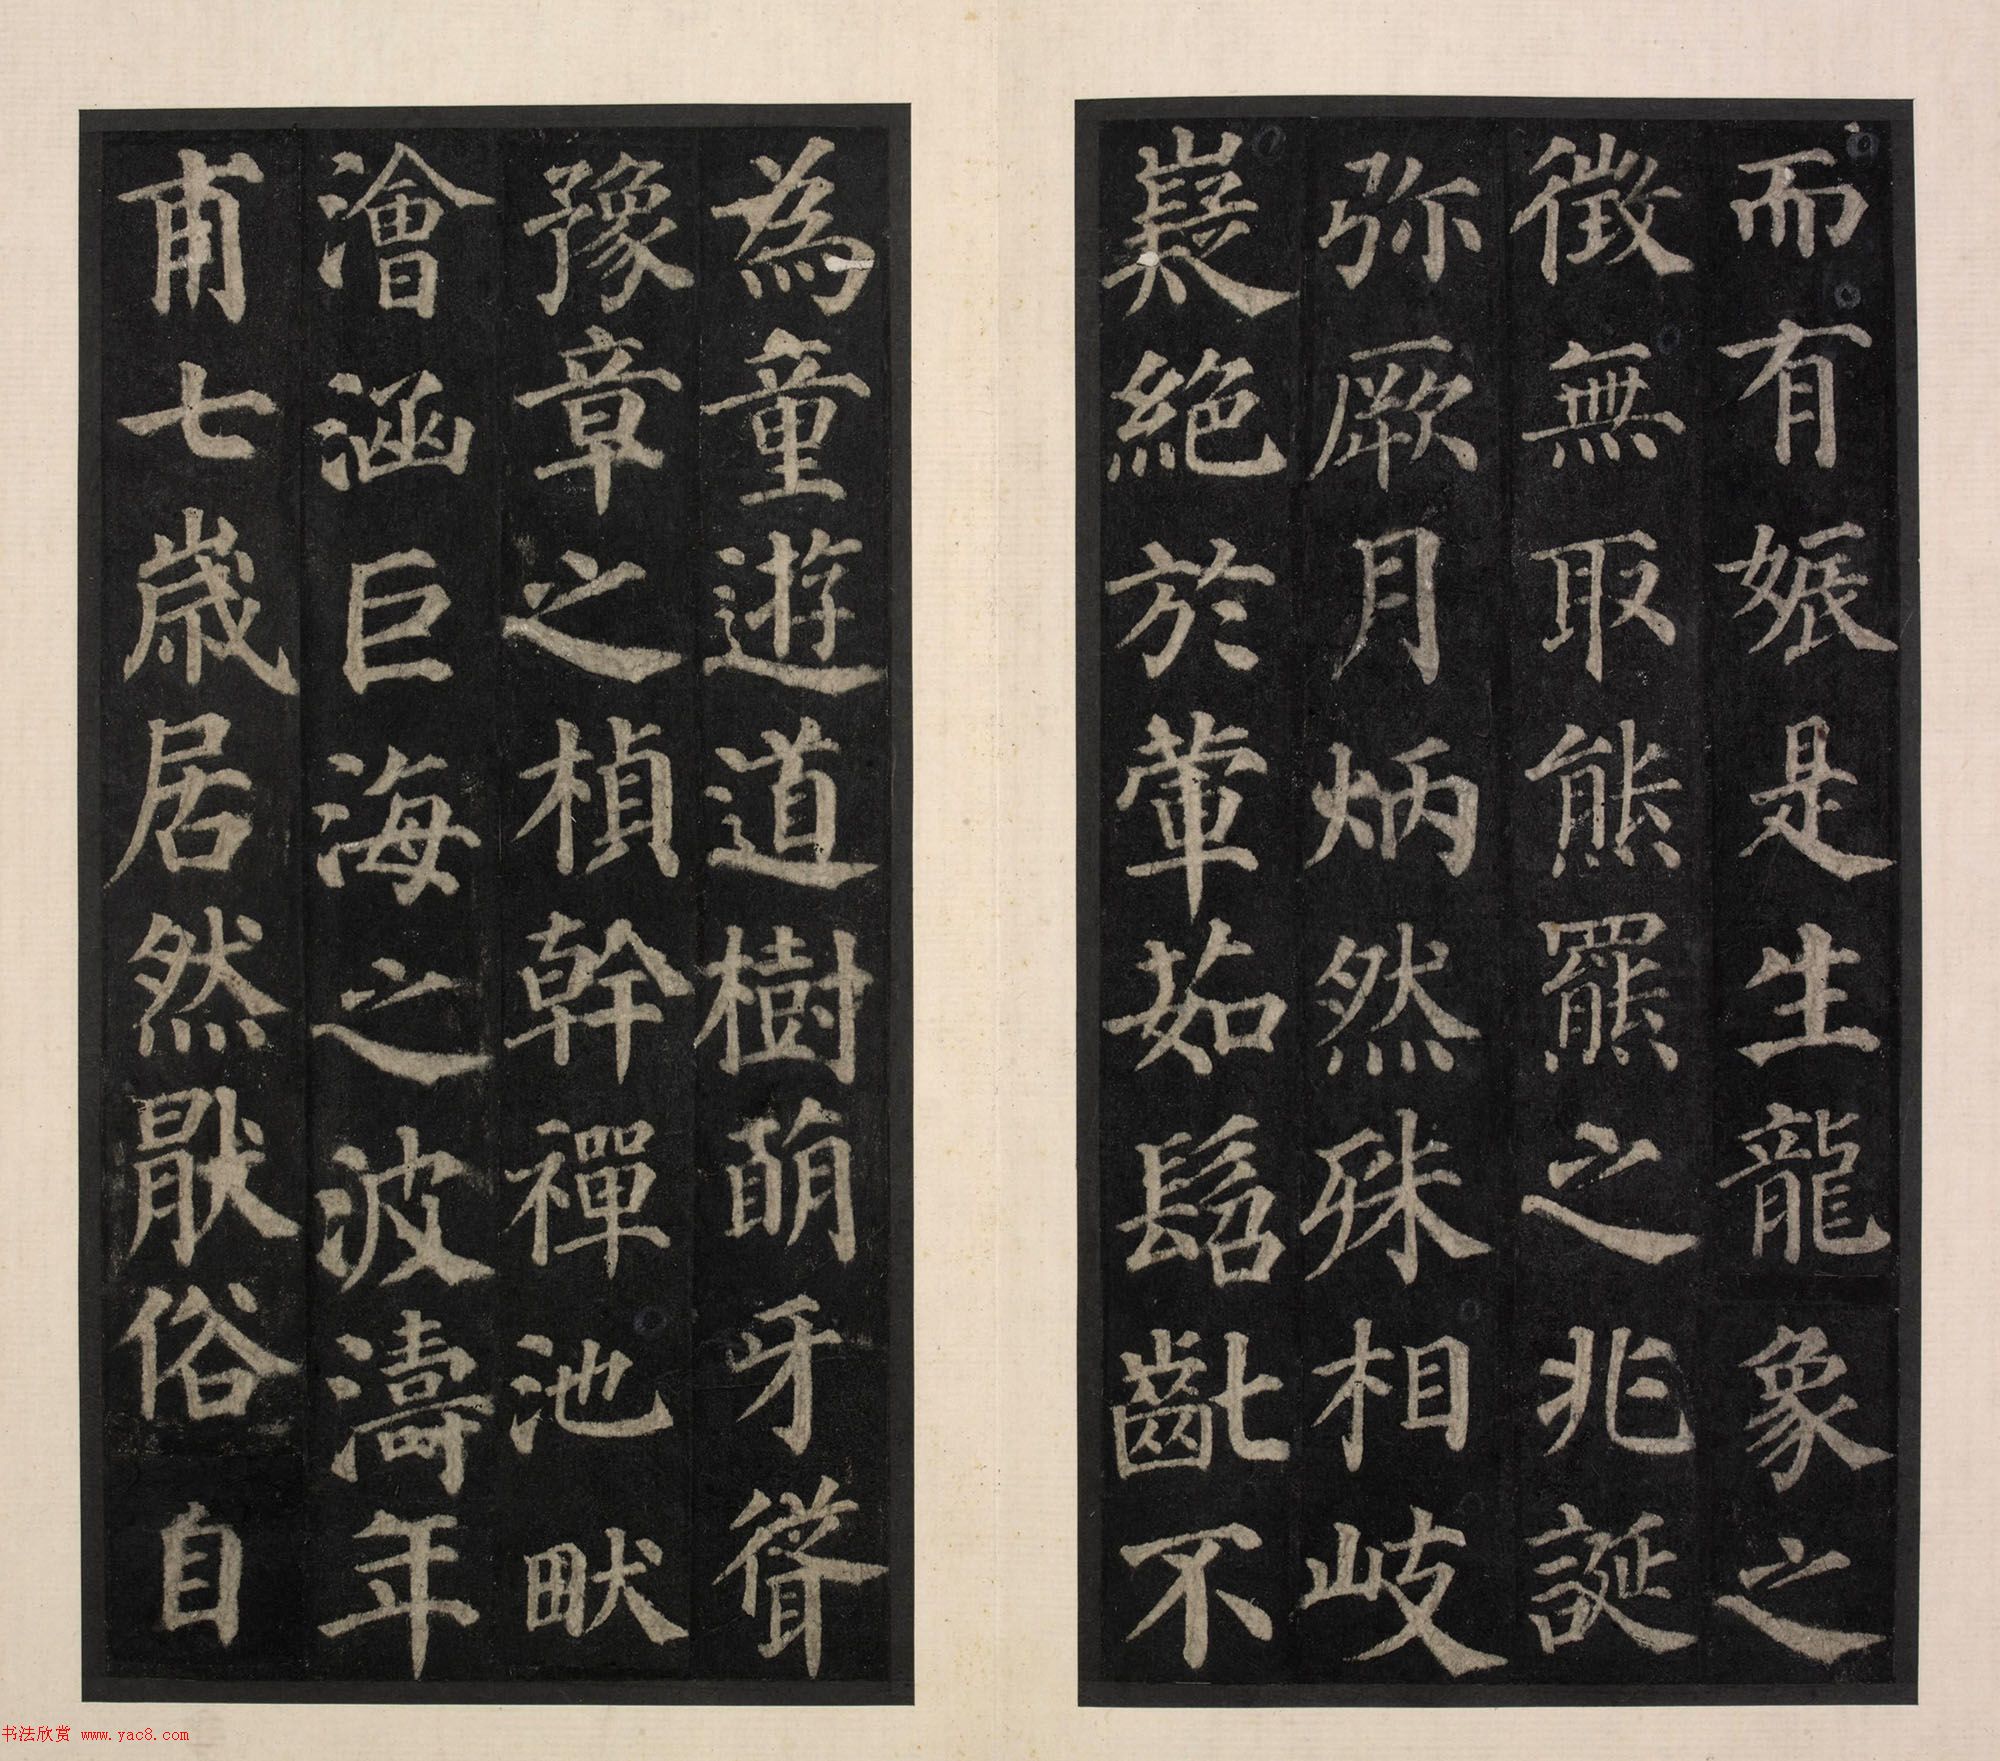 而有娠是生龍象之
徴無取熊羆之兆誕
弥厥月炳然殊相岐
嶷絶於葷茹髫齓不
為童遊道樹萌牙聳
豫章之楨幹禪池畎
澮涵巨海之波濤年
甫七歳居然猒俗自
书法欣赏 www.yac8.com